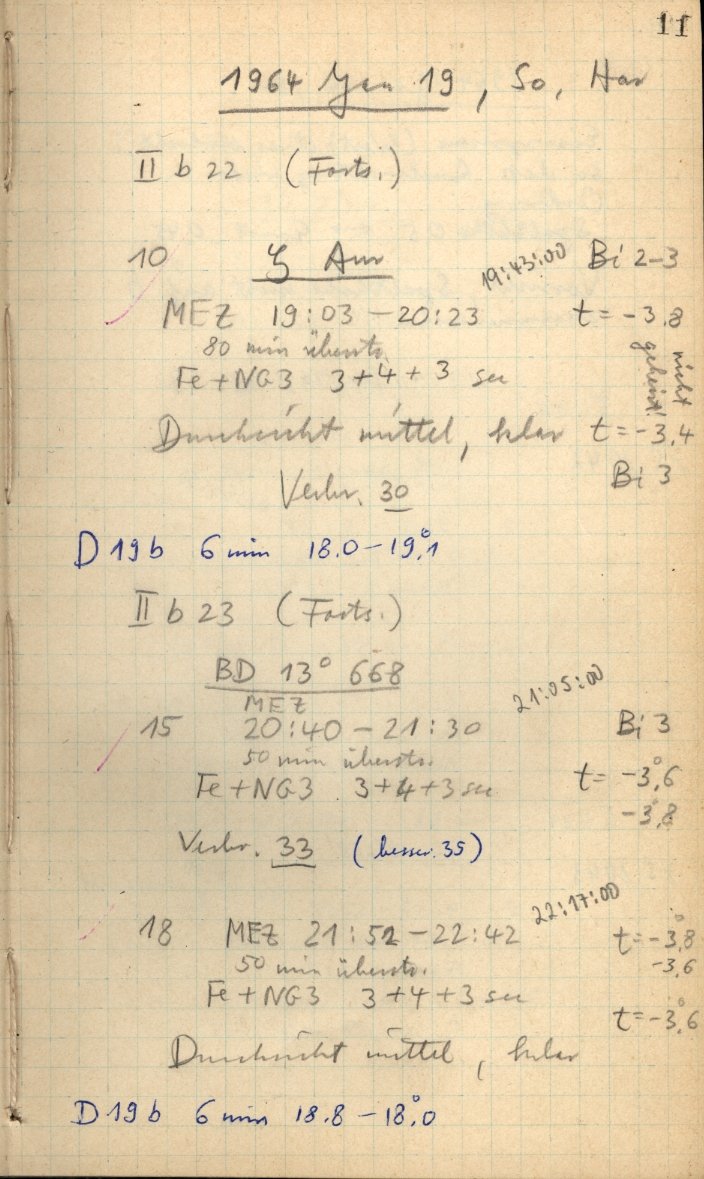 11
1964 Jan 19, So, Har
II b 22 (Forts.)
10 ζ Aur 19:43:00 Bi 2-3
MEZ 19:03 - 20:23 t = -3.8
80 min überstr. nicht geheizt!
Fe + NG3 3+4+3 sec
Durchsicht mittel, klar t = -3,4
Verbr. 30 Bi 3
D 19 b 6 min 18.0 - 19°,1
II b 23 (Forts.)
BD 13° 668 21:05:00
MEZ
15 20:40 - 21:30 Bi 3
50 min überstr.
Fe + NG3 3+4+3 sec t = -3°,6
-3°,8
Verbr. 33 (besser 35)
22:17:00
18 MEZ 21:52 - 22:42 t = -3°,8
50 min überstr. -3,6
Fe + NG3 3+4+3 sec
t = -3°,6
Durchsicht mittel, klar
D 19 b 6 min 18.8 - 18°,0